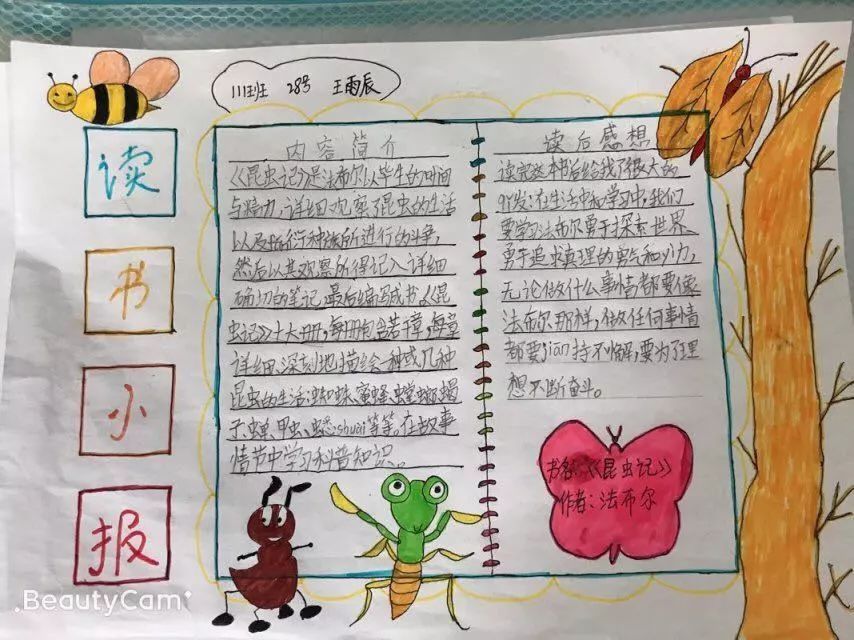 川班 28号 王雨辰
读
书
小
报
内容简介
《昆虫记》是法布尔以毕生的时间
与精力,详细观察了昆虫的生活
以及为繁衍种族所进行的斗争,
然后以其观察所得记入详细
确切的笔记,最后编写成书。《昆
虫记》十大册,每册包含若干章,每章
详细、深刻地描绘一种或几种
昆虫的生活:蜘蛛、蜜蜂、螳螂、蝎
子、蝉、甲虫、蟋shuai等等。在故事
情节中学习科普知识。
读后感想
读完这本书后给我了很大的
qi发:在生活中和学习中,我们
要学习法布尔勇于探索世界、
勇于追求真理的勇气和yi力,
无论做什么事情都要像
法布尔那样,做任何事情
都要jian持不懈,要为了理
想不断奋斗。
书名:《昆虫记》
作者:法布尔
.BeautyCam